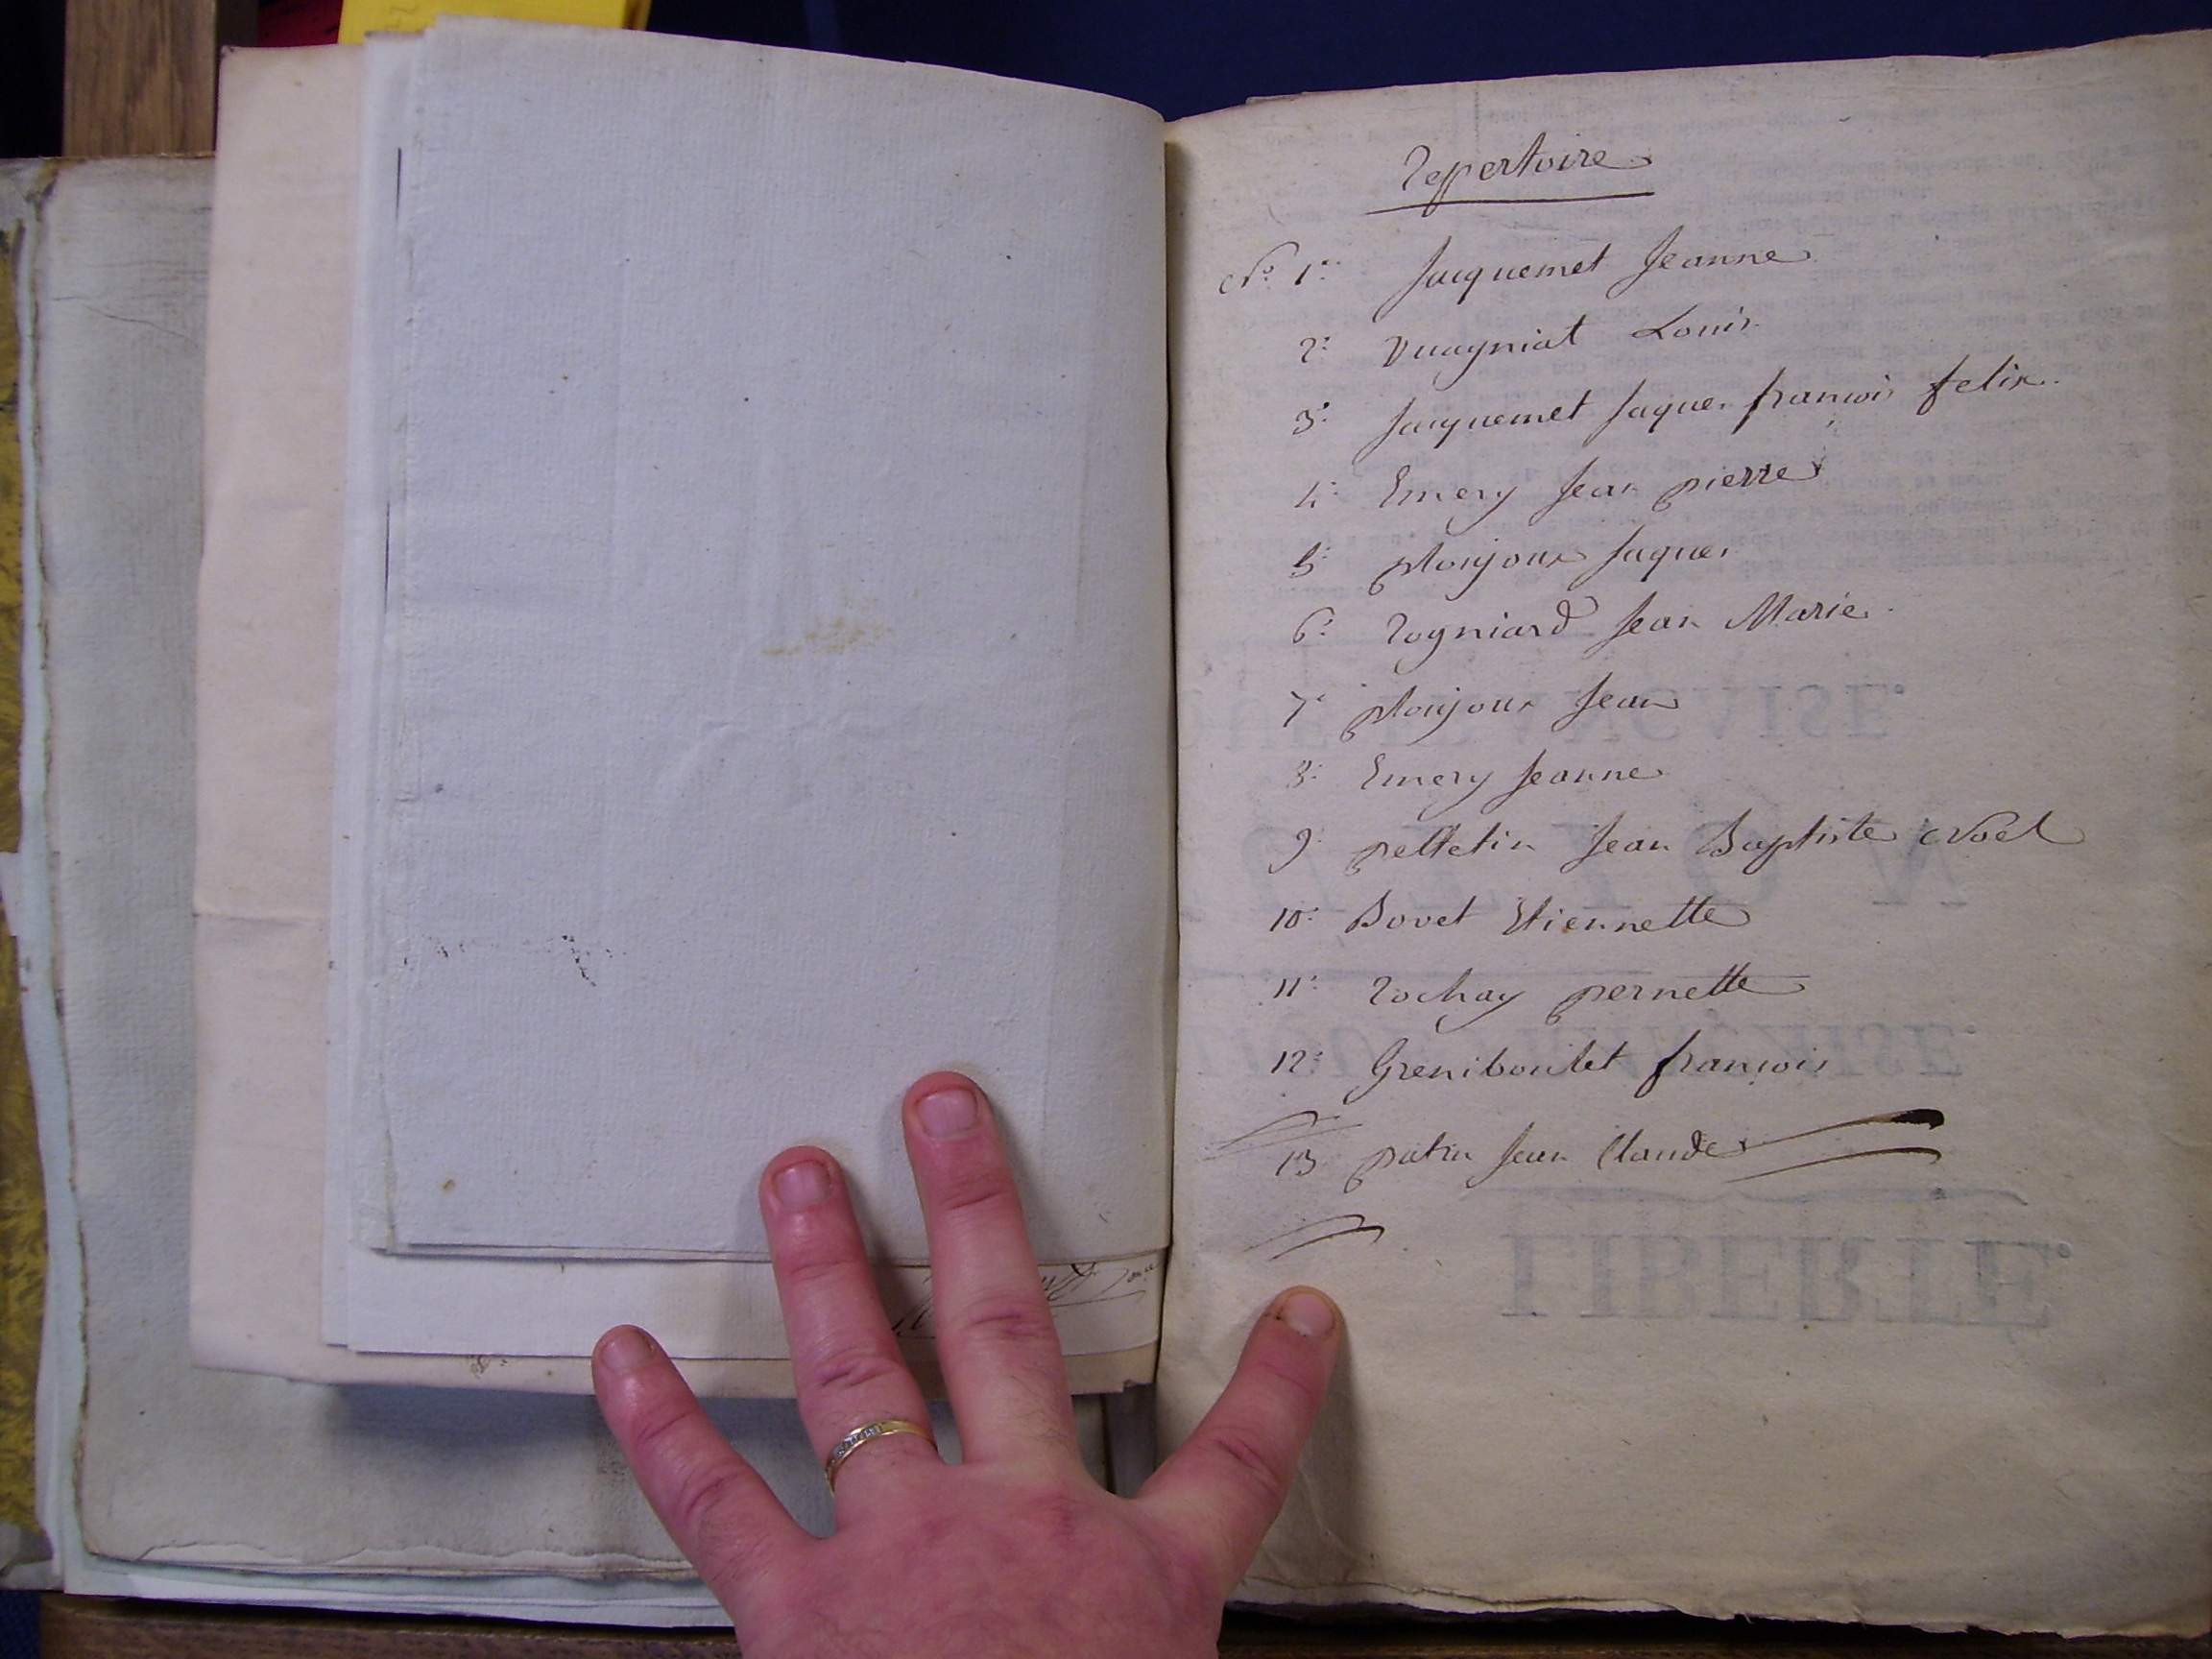 Repertoire
No. 1. Jacquemet Jeanne
2. Vuagniat Louis
3. Jacquemet Jaques francois felix
4. Emery Jean pierre
5. plonjoux Jaques
6. Rogniard Jean Marie
7. plonjoux Jean
8. Emery Jeanne
9. pelletin Jean Baptiste Noel
10. Bovet Etiennette
11. Rochay pernette
12. Greniboulet francois
13 patin Jean Claude
LIBERTÉ